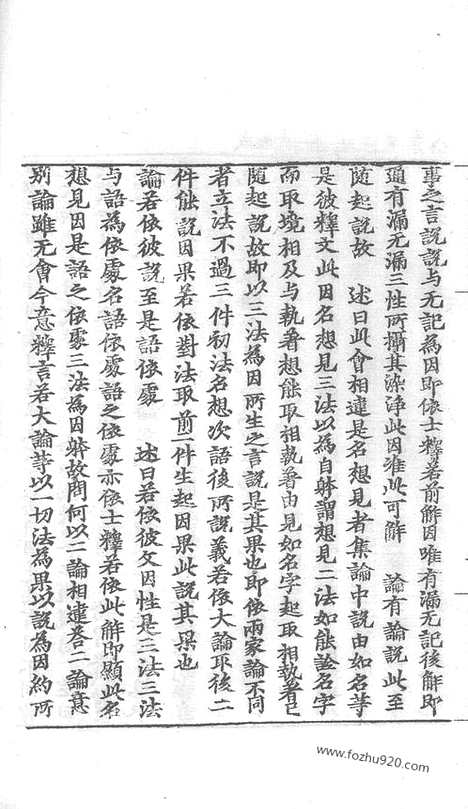 事之言說說与无記為因即依士釋若前解因唯有漏无記後解即
通有漏无漏三性所攝其染淨此因准此可解　論有論說此至
隨起說故　述曰此會相違是名想見者集論中說由如名等
是彼釋文此因名想見三法以為自躰謂想見二法如能詮名字
而取境相及与執著想能取相執著由見如名字起取相執著已
隨起說故即以三法為因所生之言說是其果也即依兩家論不同
者立法不過三件初法名想次語後所說義若依大論取後二
件能說因果若依對法取前二件生起因果此說其果也
論若依彼說至是語依處　述曰若依彼文因性是三法三法
与語為依處名語依處語之依處亦依士釋若依此解即顯此名
想見因是語之依處三法為因躰故問何以二論相違荅二論意
別論雖无會今意釋言若大論等以一切法為果以說為因約所
www.fozhu920.com